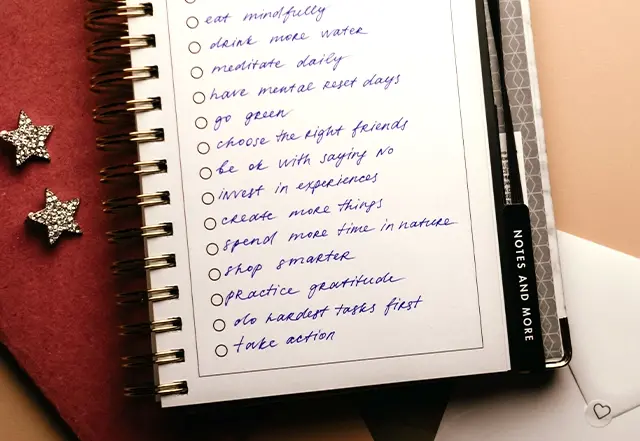 eat mindfully
drink more water
meditate daily
have mental reset days
go green
choose the right friends
be ok with saying no
invest in experiences
create more things
spend more time in nature
shop smarter
practice gratitude
do hardest tasks first
take action
NOTES AND MORE